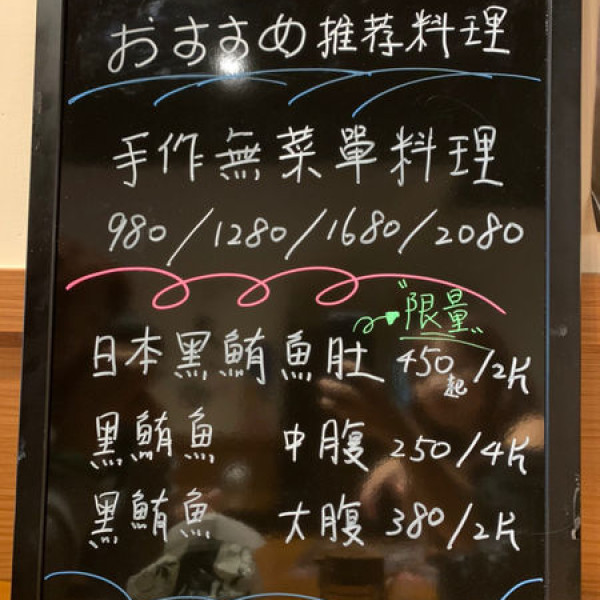 おすすめ 推荐料理
手作無菜單料理
980/1280/1680/2080
"限量"
日本黑鮪魚肚 450起/2片
黑鮪魚 中腹 250/4片
黑鮪魚 大腹 380/2片